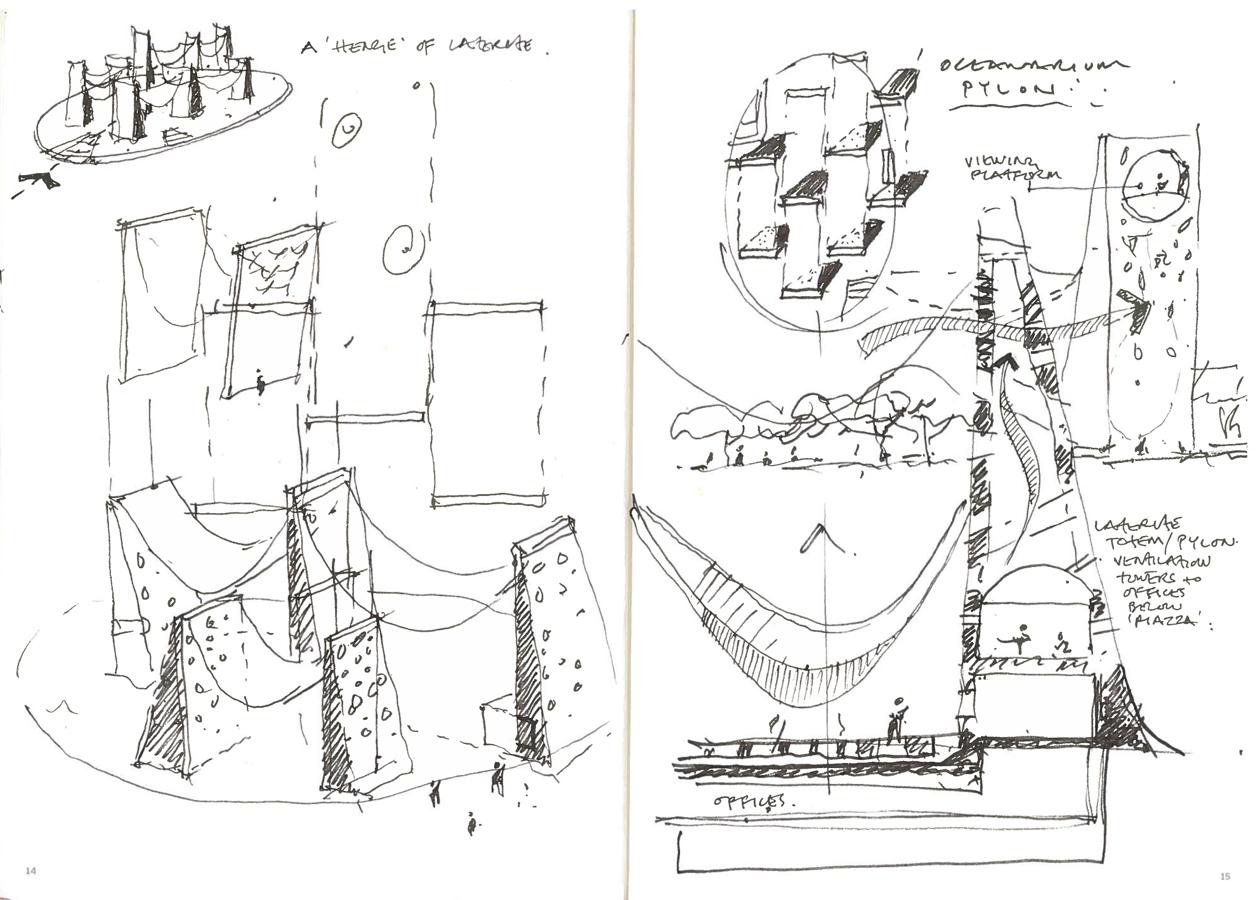 A 'HENGE' OF LATERITE.
OCEANARIUM
PYLON.
VIEWING
PLATFORM
LATERITE
TOTEM/PYLON.
VENTILATION
TOWERS to
OFFICES
BELOW
'PIAZZA'.
OFFICES.
14
15